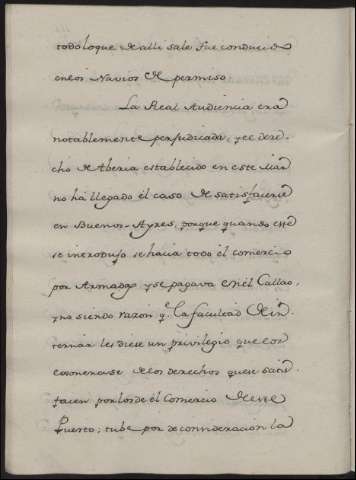 todo loque de alli sale fue conducido
en los Navios de permiso
La Real Audiencia era
notablemente perjudicada, y el dere-
cho de Aberia establecido en este Mar
no ha llegado él caso de satisfacerse
en Buenos-Ayres, porque quando este
se introdujo se hacia todo él comercio
por Armadas y se pagava en él Callao,
y no siendo razon q.e la facultad de in-
ternar les diese un privilegio que los
exonerase de los derechos que se satis-
facen por los de él Comercio de este
Puerto, tube por de consideracion la